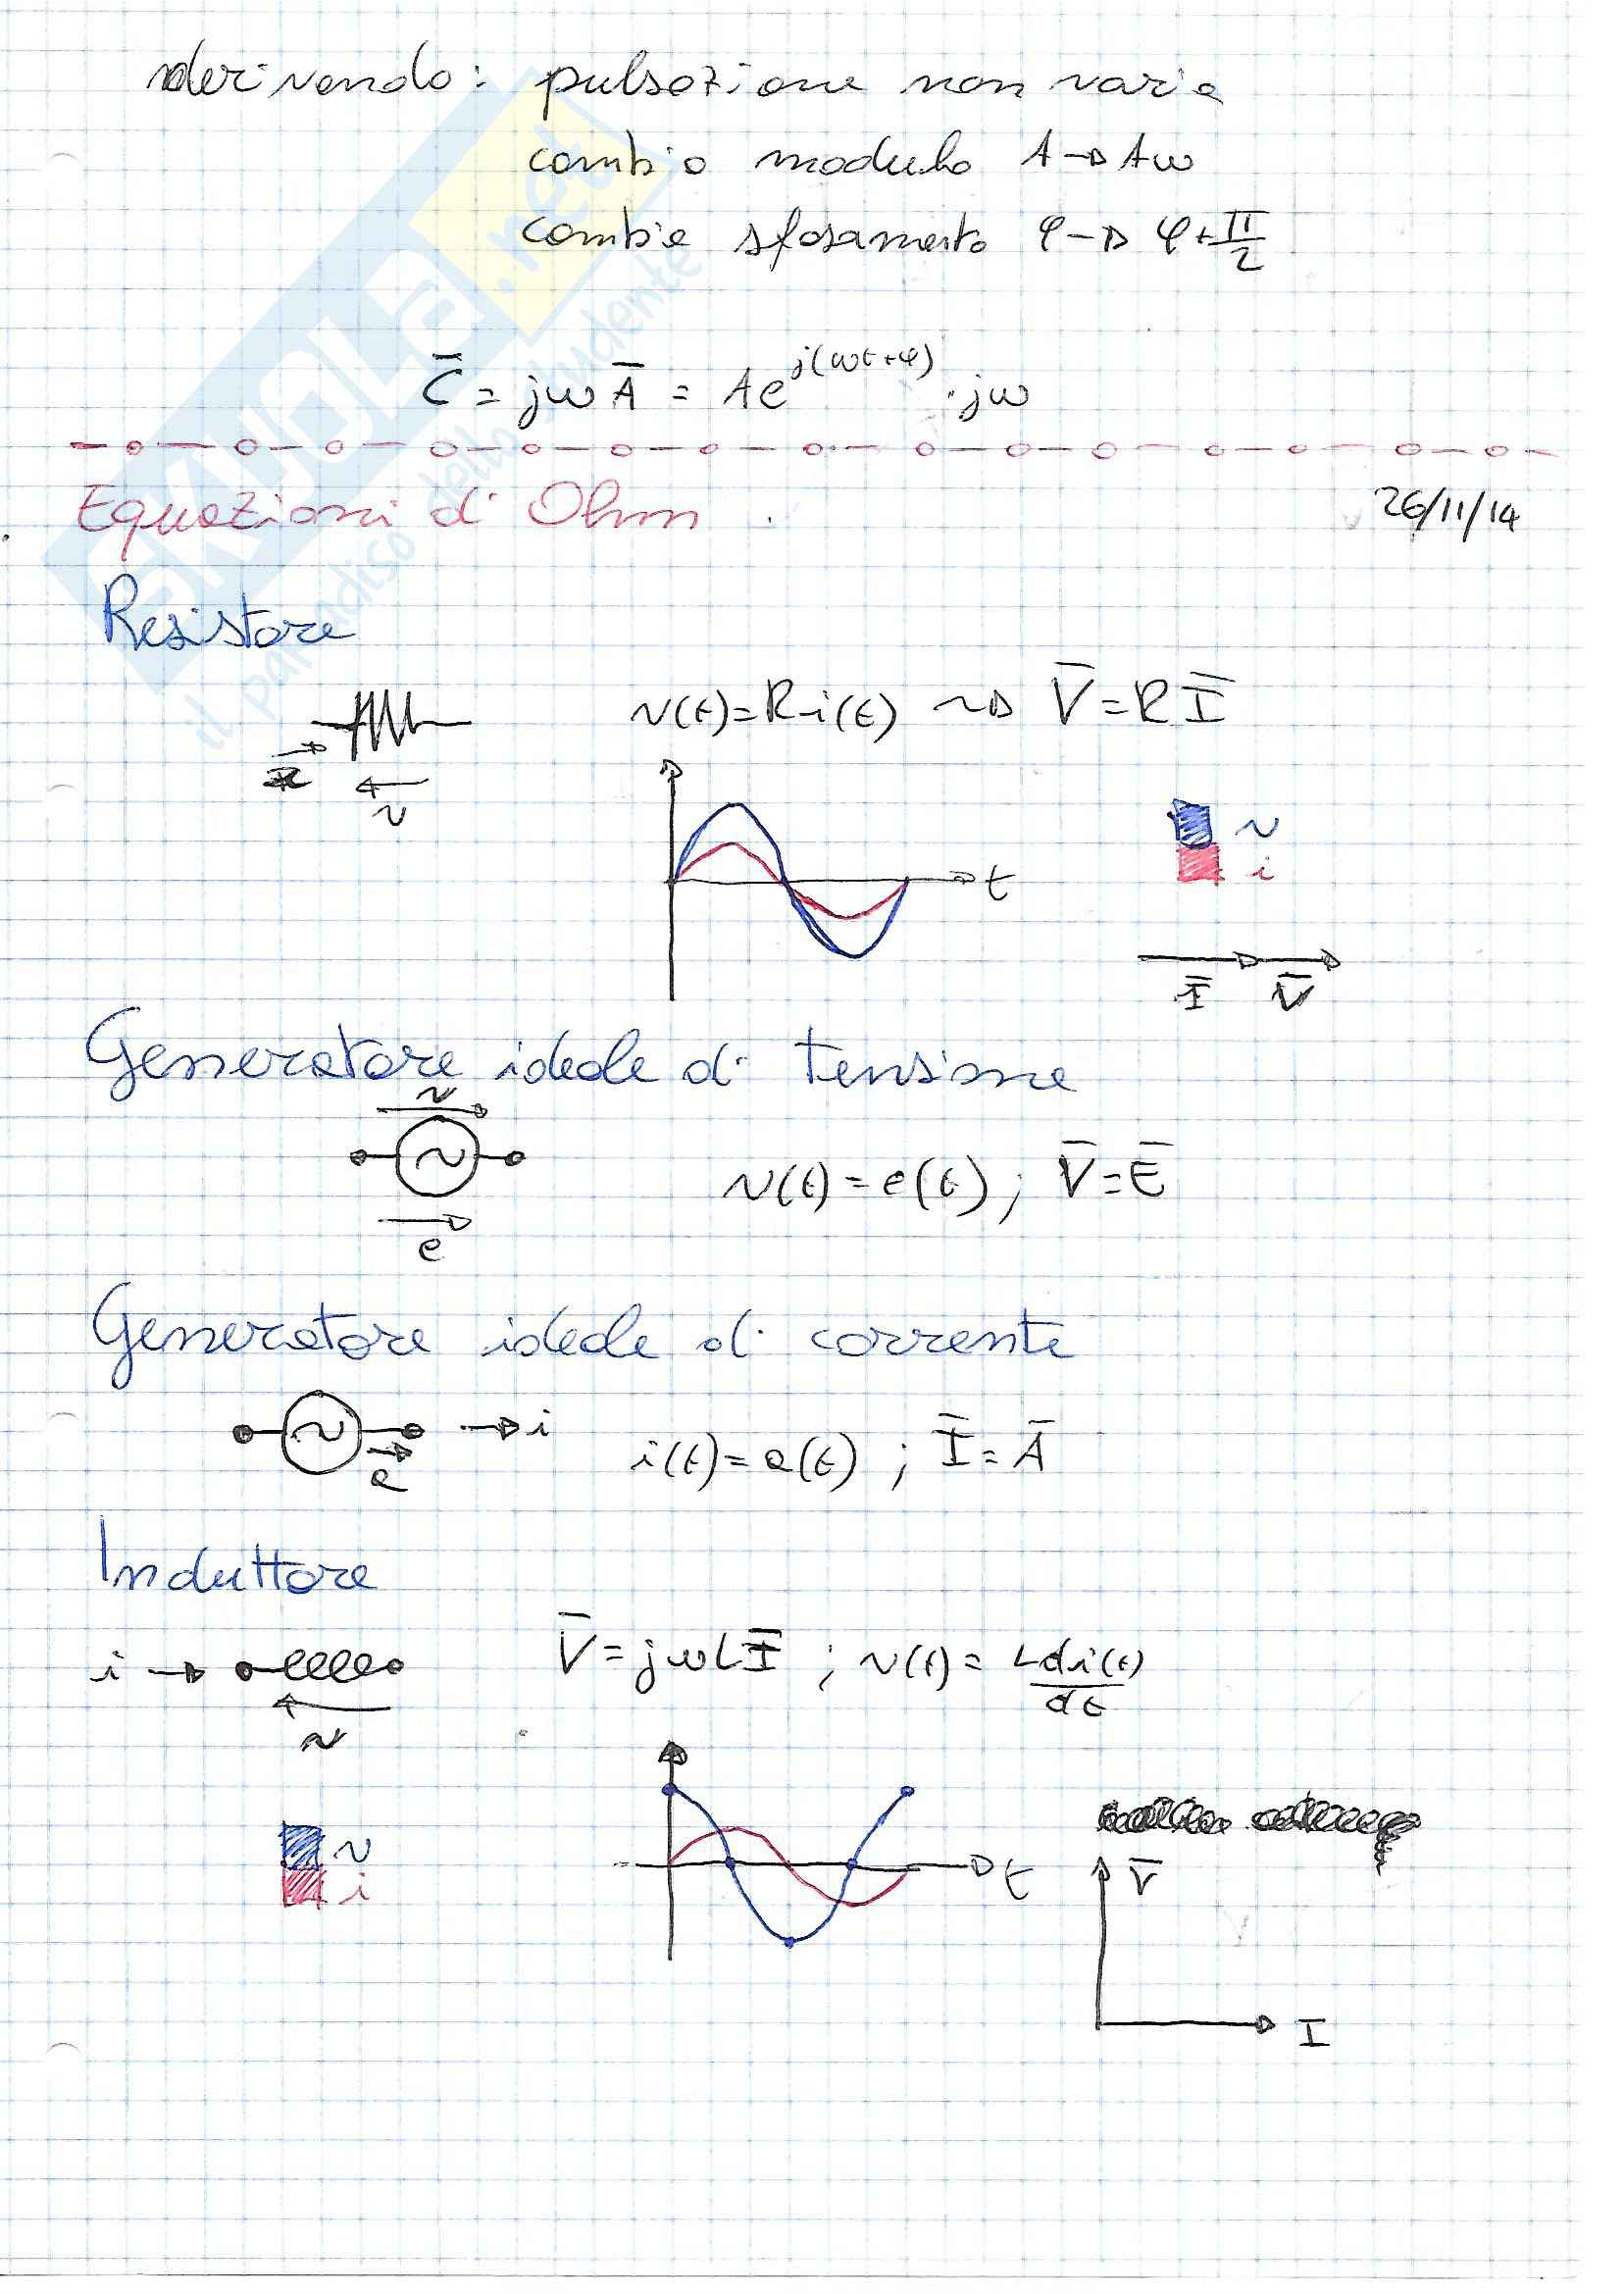 derivando: pulsazione non varia
cambia modulo A → Aω
cambia sfasamento φ → φ+π/2
C̅ = jωA̅ = Ae^{j(ωt+φ)} · jω
Equazioni di Ohm
26/11/14
Resistore
v(t)=Ri(t) ~> V̅=RI̅
v
v
i
t
I̅ V̅
Generatore ideale di tensione
v
v(t)=e(t); V̅=E̅
e
Generatore ideale di corrente
i
i(t)=a(t); I̅=A̅
a
Induttore
i
V̅=jωLI̅; v(t)=Ldi(t)/dt
v
v
i
t
V̅
I
SKUOLA.net
il paradiso dello studente